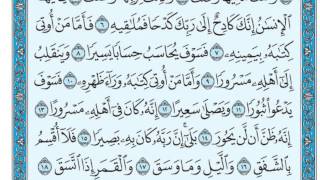 ٱلْإِنسَٰنُ إِنَّكَ كَادِحٌ إِلَىٰ رَبِّكَ كَدْحًا فَمُلَٰقِيهِ ٦ فَأَمَّا مَنْ أُوتِىَ
كِتَٰبَهُۥ بِيَمِينِهِۦ ٧ فَسَوْفَ يُحَاسَبُ حِسَابًا يَسِيرًا ٨ وَيَنقَلِبُ
إِلَىٰٓ أَهْلِهِۦ مَسْرُورًا ٩ وَأَمَّا مَنْ أُوتِىَ كِتَٰبَهُۥ وَرَآءَ ظَهْرِهِۦ ١٠ فَسَوْفَ
يَدْعُوا۟ ثُبُورًا ١١ وَيَصْلَىٰ سَعِيرًا ١٢ إِنَّهُۥ كَانَ فِىٓ أَهْلِهِۦ مَسْرُورًا ١٣
إِنَّهُۥ ظَنَّ أَن لَّن يَحُورَ ١٤ بَلَىٰٓ إِنَّ رَبَّهُۥ كَانَ بِهِۦ بَصِيرًا ١٥ فَلَآ أُقْسِمُ
بِٱلشَّفَقِ ١٦ وَٱلَّيْلِ وَمَا وَسَقَ ١٧ وَٱلْقَمَرِ إِذَا ٱتَّسَقَ ١٨